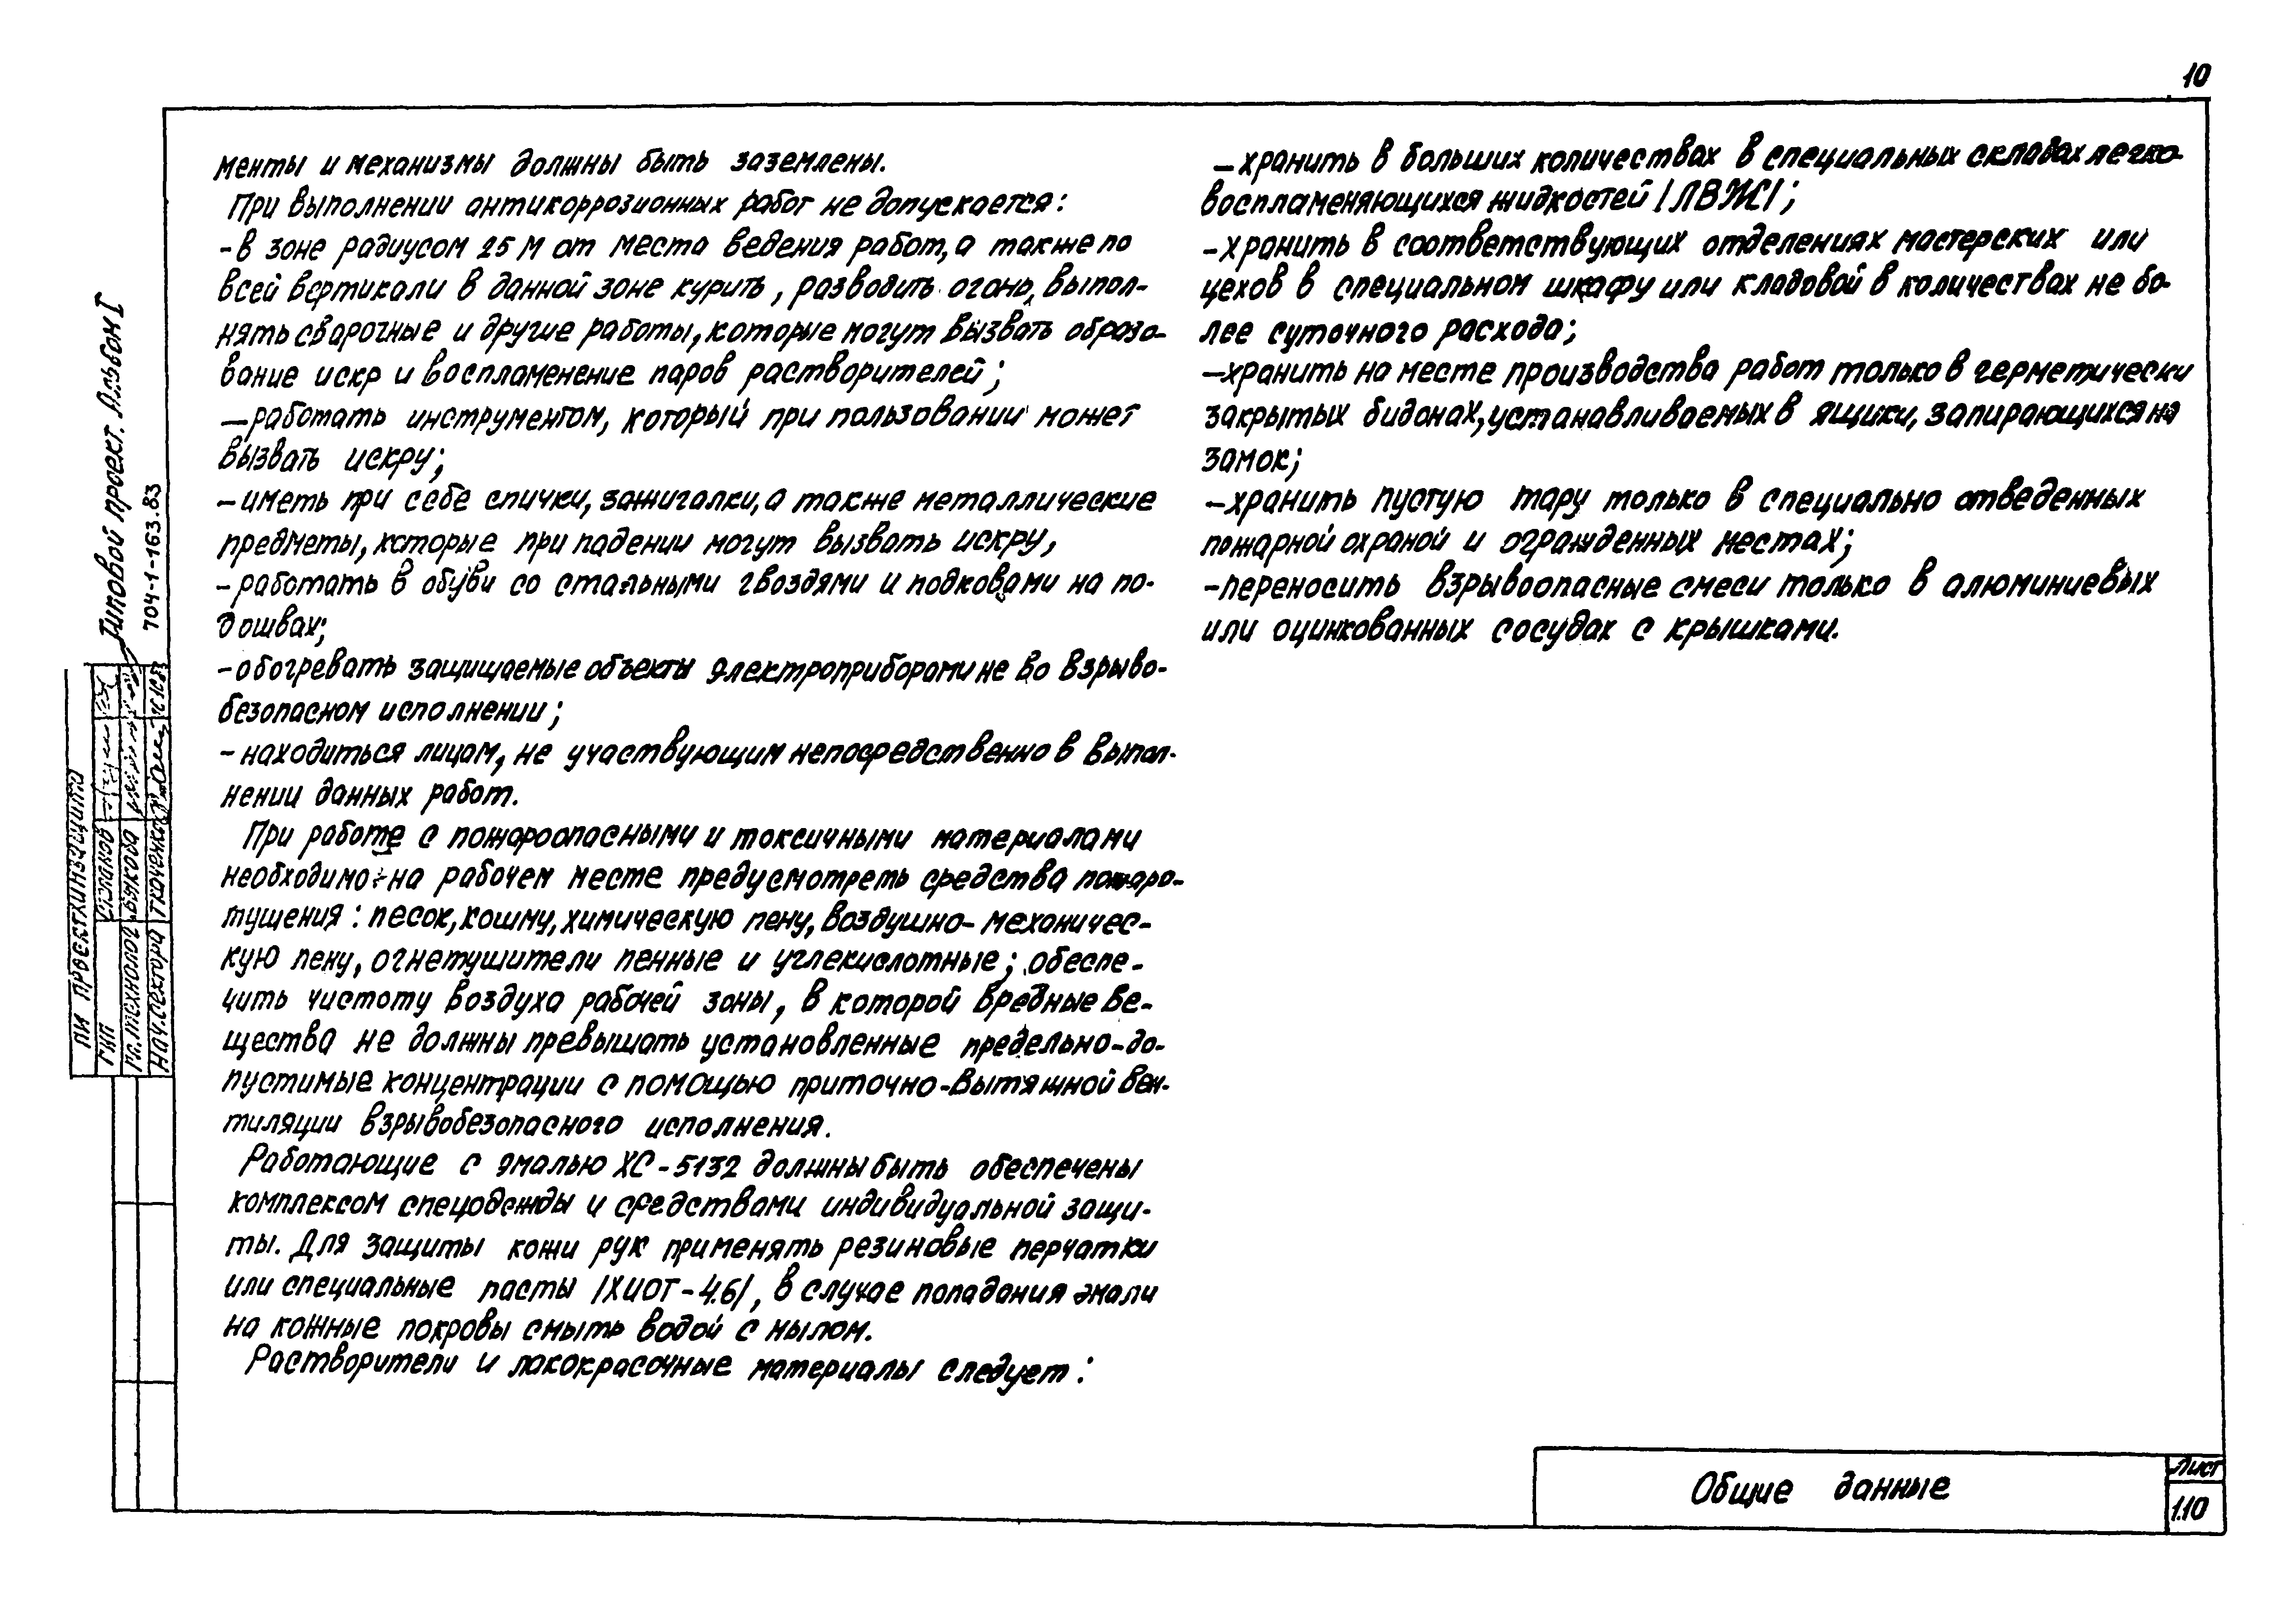 10
менты и механизмы должны быть заземлены.
При выполнении антикоррозионных работ не допускается:
- в зоне радиусом 25 м от места ведения работ, а также по
всей вертикали в данной зоне курить, разводить огонь, выпол-
нять сварочные и другие работы, которые могут вызвать образо-
вание искр и воспламенение паров растворителей;
- работать инструментом, который при пользовании может
вызвать искру;
- иметь при себе спички, зажигалки, а также металлические
предметы, которые при падении могут вызвать искру,
- работать в обуви со стальными гвоздями и подковами на по-
дошвах;
- обогревать защищаемые объекты электроприборами не во взрыво-
безопасном исполнении;
- находиться лицам, не участвующим непосредственно в выпол-
нении данных работ.
При работе с пожароопасными и токсичными материалами
необходимо на рабочем месте предусмотреть средства пожаро-
тушения: песок, кошму, химическую пену, воздушно-механичес-
кую пену, огнетушители пенные и углекислотные; обеспе-
чить чистоту воздуха рабочей зоны, в которой вредные ве-
щества не должны превышать установленные предельно-до-
пустимые концентрации с помощью приточно-вытяжной вен-
тиляции взрывобезопасного исполнения.
Работающие с эмалью ХС-5132 должны быть обеспечены
комплексом спецодежды и средствами индивидуальной защи-
ты. Для защиты кожи рук применять резиновые перчатки
или специальные пасты /ХИОТ-4.6/, в случае попадания эмали
на кожные покровы смыть водой с мылом.
Растворители и лакокрасочные материалы следует:
- хранить в больших количествах в специальных складах легко-
воспламеняющихся жидкостей /ЛВЖ/;
- хранить в соответствующих отделениях мастерских или
цехов в специальном шкафу или кладовой в количествах не бо-
лее суточного расхода;
- хранить на месте производства работ только в герметически
закрытых бидонах, устанавливаемых в ящики, запирающихся на
замок;
- хранить пустую тару только в специально отведенных
пожарной охраной и огражденных местах;
- переносить взрывоопасные смеси только в алюминиевых
или оцинкованных сосудах с крышками.
Типовой проект. Альбом I
704-1-163.83
ПИ Проектхимзащита
ГИП
Гл.технолог Быкова
Нач.сектора Ткаченко
Общие данные
Лист
1.10